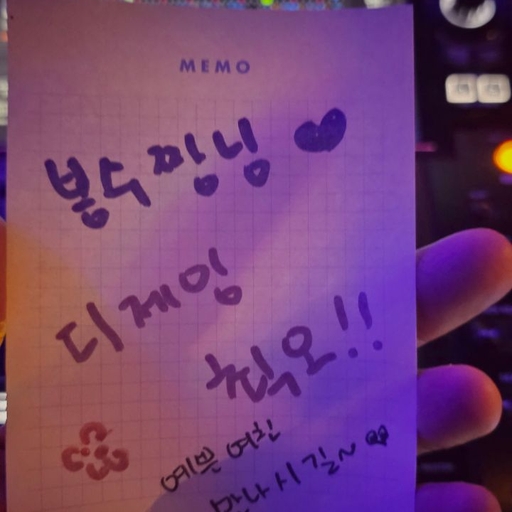 MEMO
봉수찡닝 ♥
디제잉
췩오!!
예쁜 여친
만나시길~ ♥